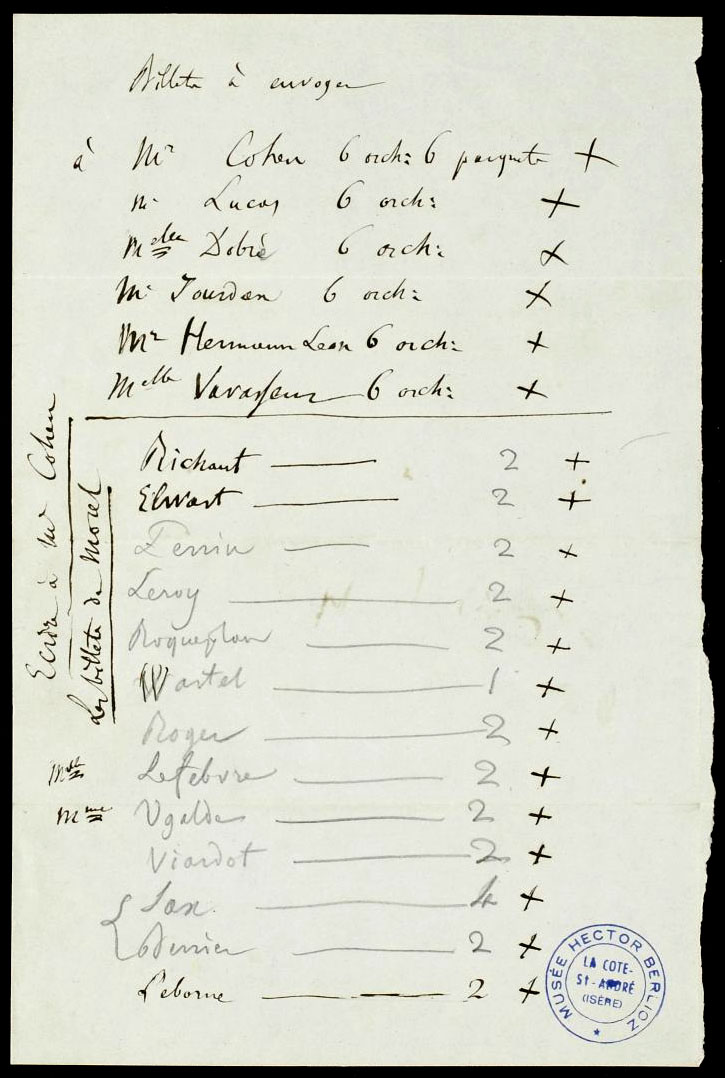 Billets à envoyer
à Mr Cohen 6 orch: 6 parquets +
Mr Lucas 6 orch: +
Melle Dobré 6 orch: +
Mr Jourdan 6 orch: +
Mr Hermann Leon 6 orch: +
Melle Vavasseur 6 orch: +
Ecrire à Mr Cohen
Les billets de Morel
Richaut 2 +
Elwart 2 +
Perrin 2 +
Leroy 2 +
Roqueplan 2 +
Wartel 1 +
Roger 2 +
Melle Lefebvre 2 +
Mme Ugalde 2 +
Viardot 2 +
Sax 4 +
2 +
Leborne 2 +
MUSÉE HECTOR BERLIOZ
LA COTE-
St-ANDRÉ
(ISÈRE)